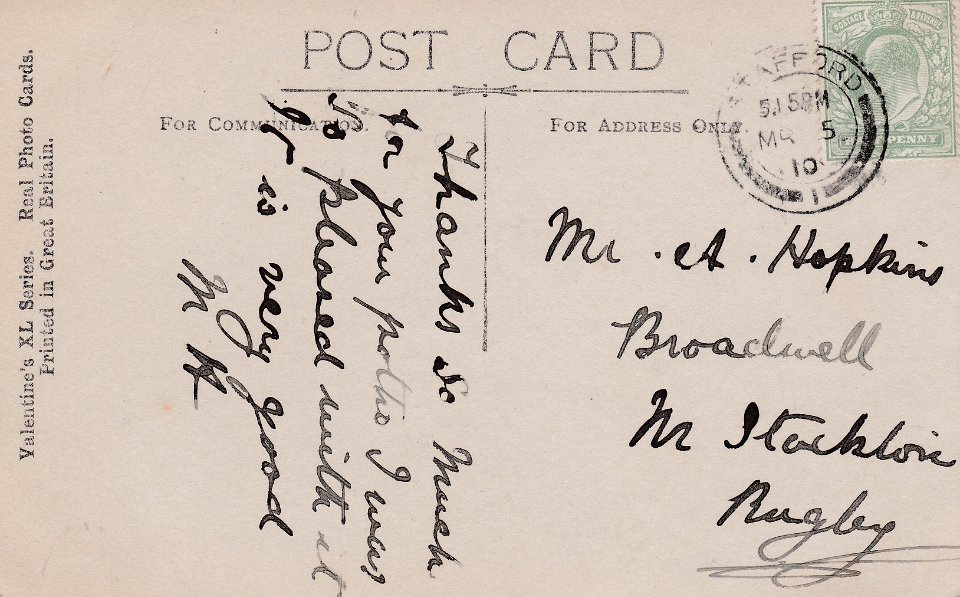 POST CARD
FOR COMMUNICATION.
FOR ADDRESS ONLY.
Valentine's XL Series. Real Photo Cards.
Printed in Great Britain.
Thanks So Much
for your potho I was
So pleased with it
is very good
M H
Mr. A. Hopkins
Broadwell
Nr Stockton
Rugby
POSTAGE
PENNY
AFFORD
5.15PM
10
1